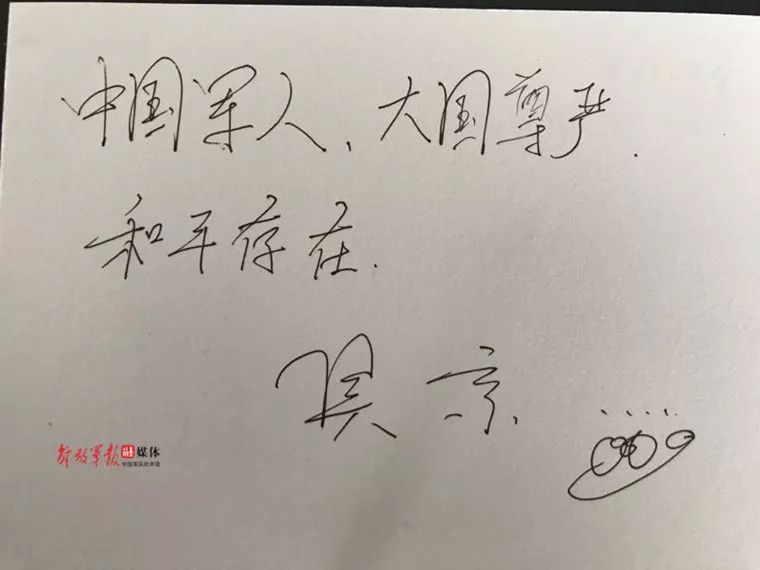 中国军人、大国尊严.
和平存在.
吴京
解放军报 融媒体
中国军队的声音